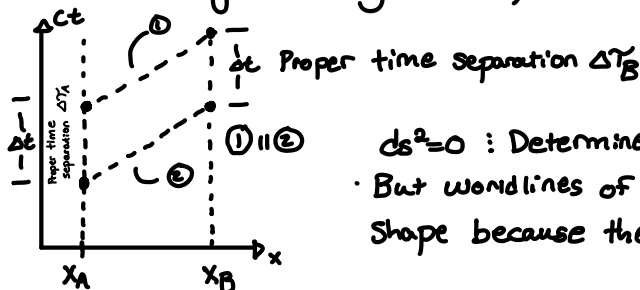 Ct
①
Δt Proper time separation Δτ_B
Δt
Proper time
separation Δτ_A
① || ②
②
ds²=0 : Determine
· But worldlines of
Shape because the
x_A
x_B
x